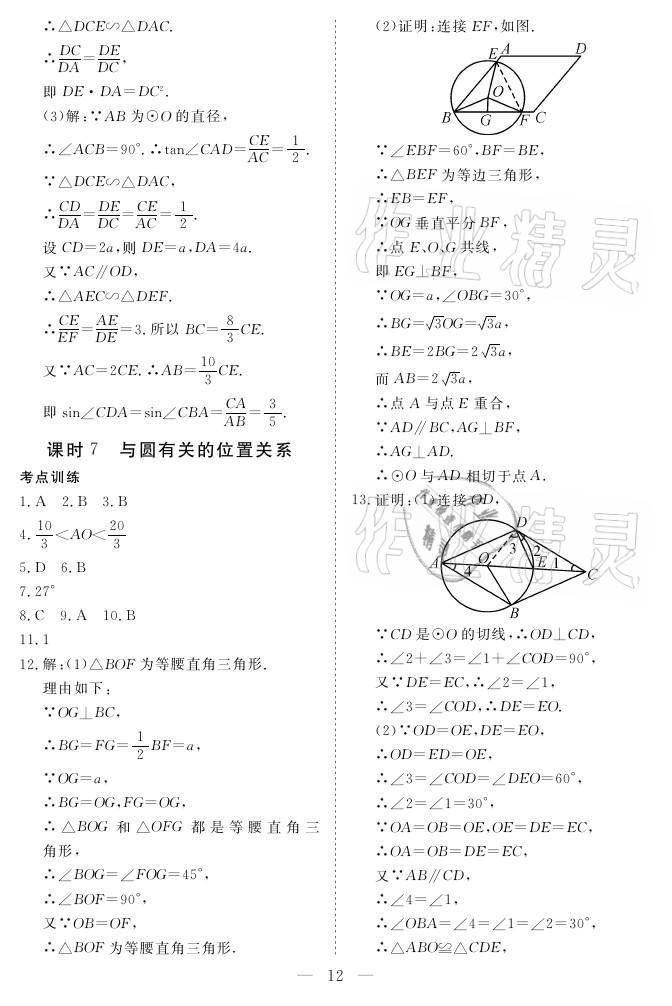 ∴△DCE∽△DAC.
∴DC/DA=DE/DC,
即 DE·DA=DC².
(3)解:∵AB 为⊙O 的直径,
∴∠ACB=90°.∴tan∠CAD=CE/AC=1/2.
∵△DCE∽△DAC,
∴CD/DA=DE/DC=CE/AC=1/2.
设 CD=2a,则 DE=a,DA=4a.
又∵AC∥OD,
∴△AEC∽△DEF.
∴CE/EF=AE/DE=3.所以 BC=8/3CE.
又∵AC=2CE.∴AB=10/3CE.
即 sin∠CDA=sin∠CBA=CA/AB=3/5.
课时 7 与圆有关的位置关系
考点训练
1. A 2. B 3. B
4. 10/3<AO<20/3
5. D 6. B
7. 27°
8. C 9. A 10. B
11. 1
12. 解:(1)△BOF 为等腰直角三角形.
理由如下:
∵OG⊥BC,
∴BG=FG=1/2BF=a,
∵OG=a,
∴BG=OG,FG=OG,
∴△BOG 和△OFG 都是等腰直角三
角形,
∴∠BOG=∠FOG=45°,
∴∠BOF=90°,
又∵OB=OF,
∴△BOF 为等腰直角三角形.
(2)证明:连接 EF,如图.
E A D
O
B G F C
∵∠EBF=60°,BF=BE,
∴△BEF 为等边三角形,
∴EB=EF,
∵OG 垂直平分 BF,
∴点 E、O、G 共线,
即 EG⊥BF,
∵OG=a,∠OBG=30°,
∴BG=√3OG=√3a,
∴BE=2BG=2√3a,
而 AB=2√3a,
∴点 A 与点 E 重合,
∵AD∥BC,AG⊥BF,
∴AG⊥AD.
∴⊙O 与 AD 相切于点 A.
13. 证明:(1)连接 OD,
D
3 2
A 4 O E 1 C
B
∵CD 是⊙O 的切线,∴OD⊥CD,
∴∠2+∠3=∠1+∠COD=90°,
又∵DE=EC,∴∠2=∠1,
∴∠3=∠COD,∴DE=EO.
(2)∵OD=OE,DE=EO,
∴OD=ED=OE,
∴∠3=∠COD=∠DEO=60°,
∴∠2=∠1=30°,
∵OA=OB=OE,OE=DE=EC,
∴OA=OB=DE=EC,
又∵AB∥CD,
∴∠4=∠1,
∴∠OBA=∠4=∠1=∠2=30°,
∴△ABO≌△CDE,
— 12 —
作业精灵
作业精灵